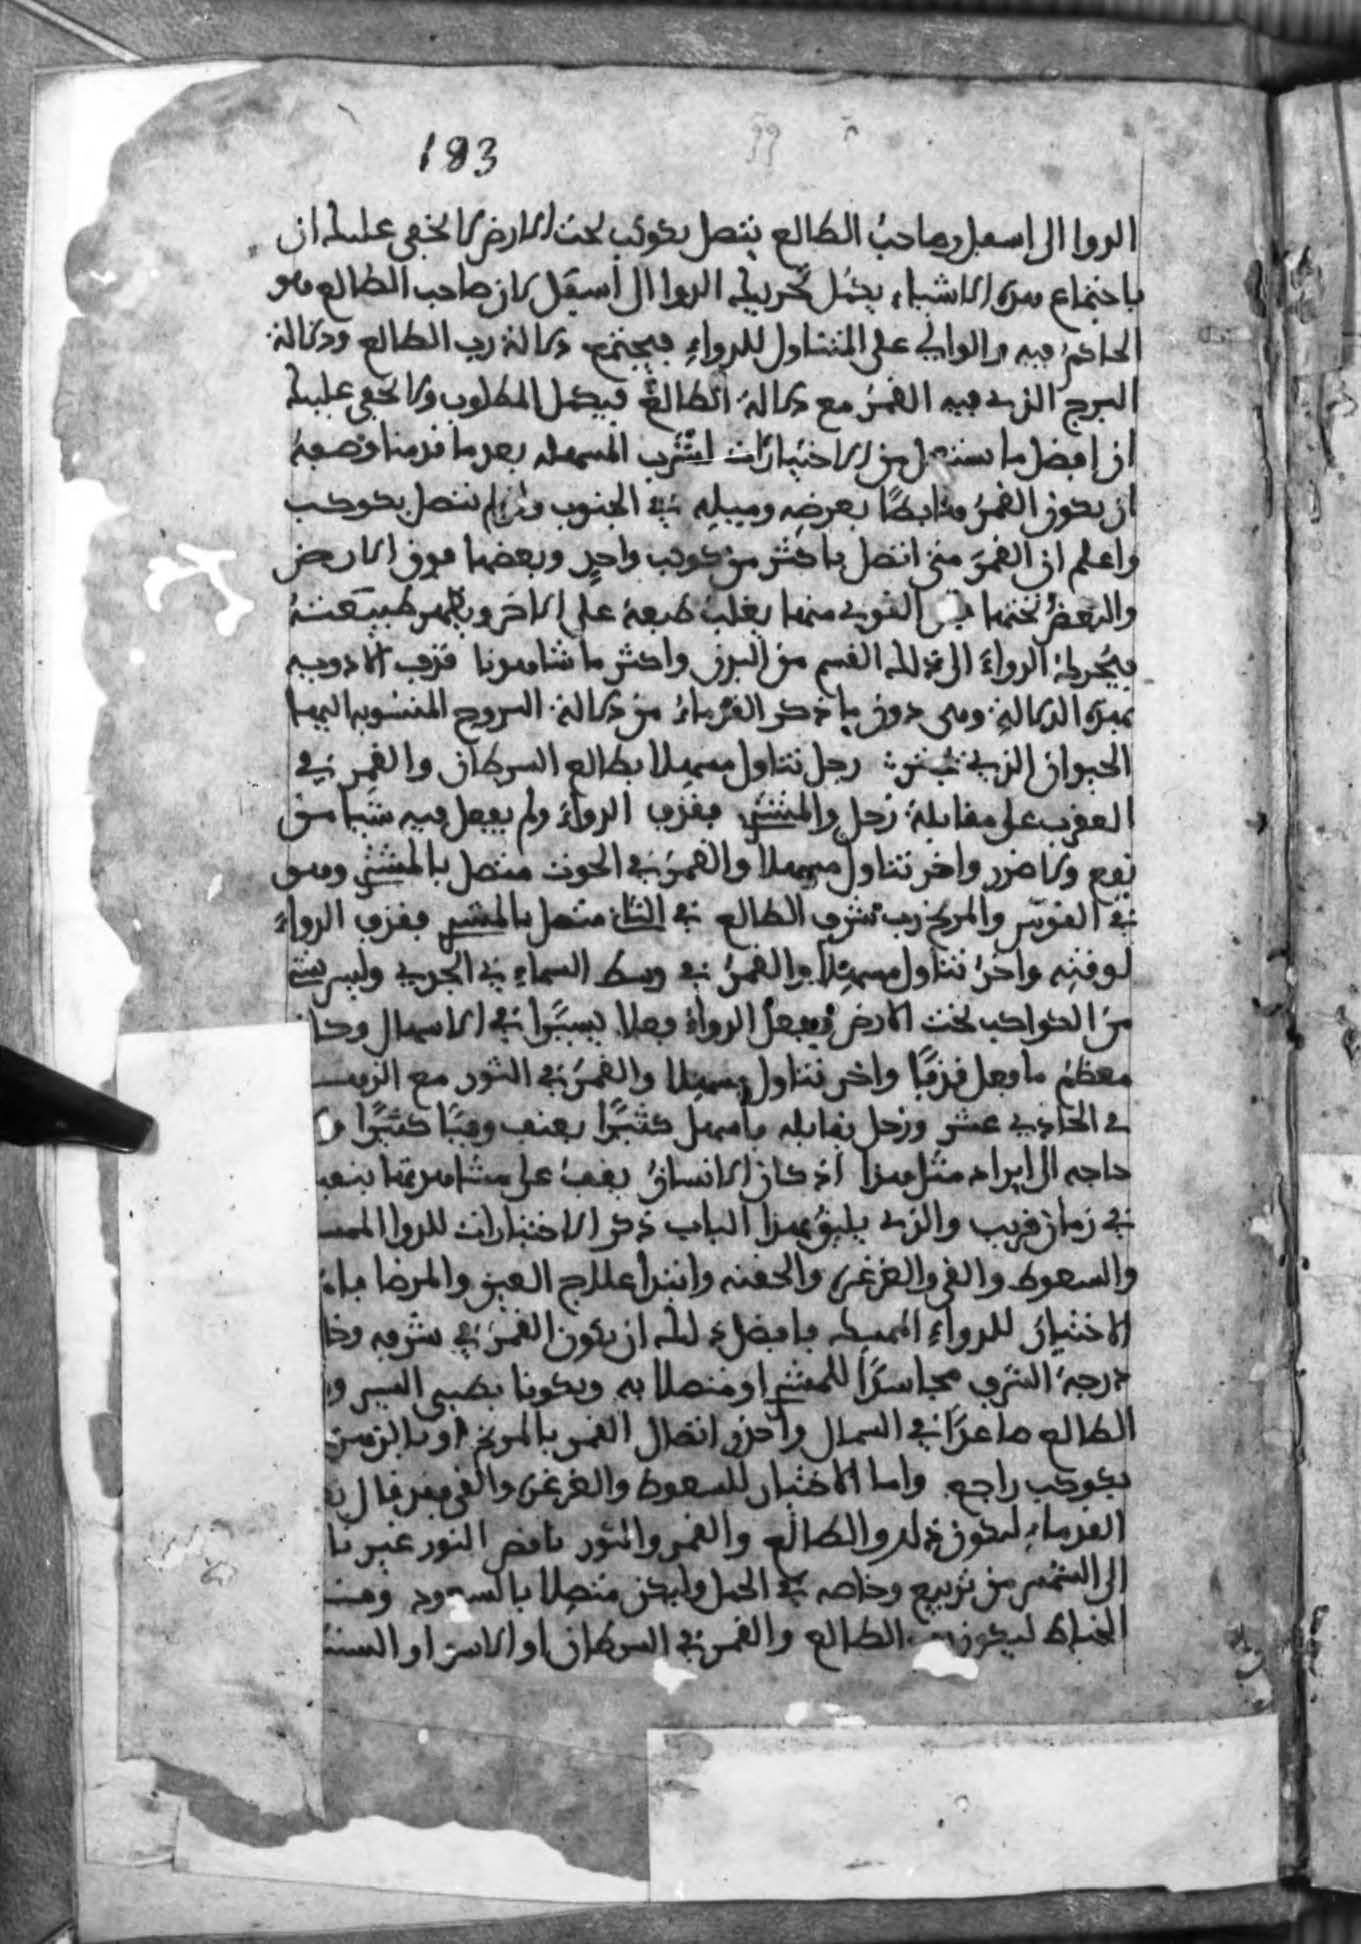 183
الدوا الى اسفل وصاحب الطالع يتصل بكوكب تحت الارض لا يخفى عليك ان
باجتماع هذه الاشياء يكمل تحريك الدوا الى اسفل لان صاحب الطالع هو
الحاكم فيه والوالي على المتناول للدواء فيجتمع دلالة رب الطالع ودلالة
البرج الذي فيه القمر مع دلالة الطالع فيكمل المطلوب ولا يخفى عليك
ان افضل ما يستعمل من الاختيارات لشرب المسهل بعد ما قدمنا وصفه
ان يكون القمر هابطًا بعرضه وميله في الجنوب وان لم يتصل بكوكب
واعلم ان القمر متى اتصل باكثر من كوكب واحد وبعضها فوق الارض
والبعض تحتها القوي منها يغلب طبعه على الاخر ويظهر طبيعته
فيحرك الدواء الى ذلك القسم من البدن واكثر ما شاهدنا قذف الادوية
بهذه الدلالة وهى دون ما ذكر القدماء من دلالة البروج المنسوبة اليها
الحيوان الذي يجتر رجل تناول مسهلا بطالع السرطان والقمر في
العقرب على مقابلة زحل والمشتري فقذف الدواء ولم يفعل فيه شيا من
نفع ولا ضرر واخر تناول مسهلا والقمر في الحوت متصل بالمشتري وهو
في القوس والمريخ رب شرف الطالع في متصل بالمشتري فقذف الدواء
لوقته واخر تناول مسهلا والقمر في وسط السماء في الجدي وليس شي
من الكواكب تحت الارض ففعل الدواء فعلا يسيرا في الاسهال وكان
معظم ما فعل قذفًا واخر تناول مسهلا والقمر في الثور مع الزهرة
في الحادي عشر وزحل يقابله فاسهل كثيرًا بعنف وقيًا كثيرًا
حاجه الى ايراد مثل هذا اذ كان الانسان يقف على مشاهدتها بنفسه
في زمان قريب والذي يليق بهذا الباب ذكر الاختيارات للدوا الممسك
والسعوط والقي والغرغرة والحقنه وابتدأ علاج العين والمرضا فاما
الاختيار للدواء الممسك فافضل ذلك ان يكون القمر في شرفه
درجة الشرف مجاسدًا للمشتري او متصلا به ويكونا بطيى السير
الطالع صاعدًا في الشمال واحذر اتصال القمر بالمريخ او بالزهرة
بكوكب راجع واما الاختيار للسعوط والغرغرة والقي فقد قال
القدماء ليكون ذلك والطالع والقمر والثور ناقص النور غير
الى الشمس من تربيع وخاصه في الحمل وليكن متصلا بالسعود
ليكون الطالع والقمر في السرطان او الاسد او